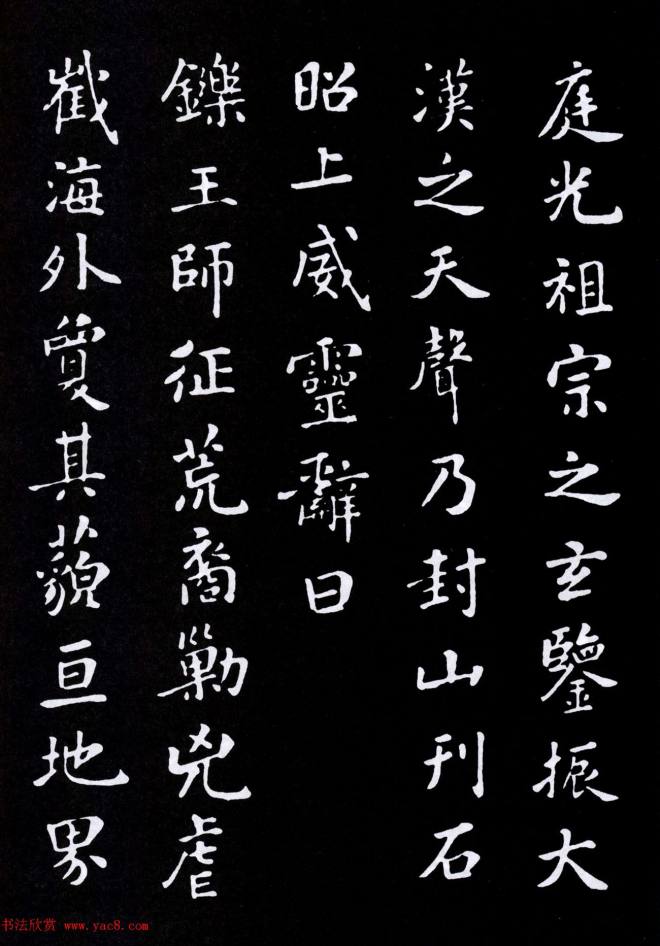 庭光祖宗之玄鑒振大
漢之天聲乃封山刊石
昭上威靈辭曰
鑠王師征荒裔勦兇虐
截海外敻其藐亘地界
书法欣赏 www.yac8.com